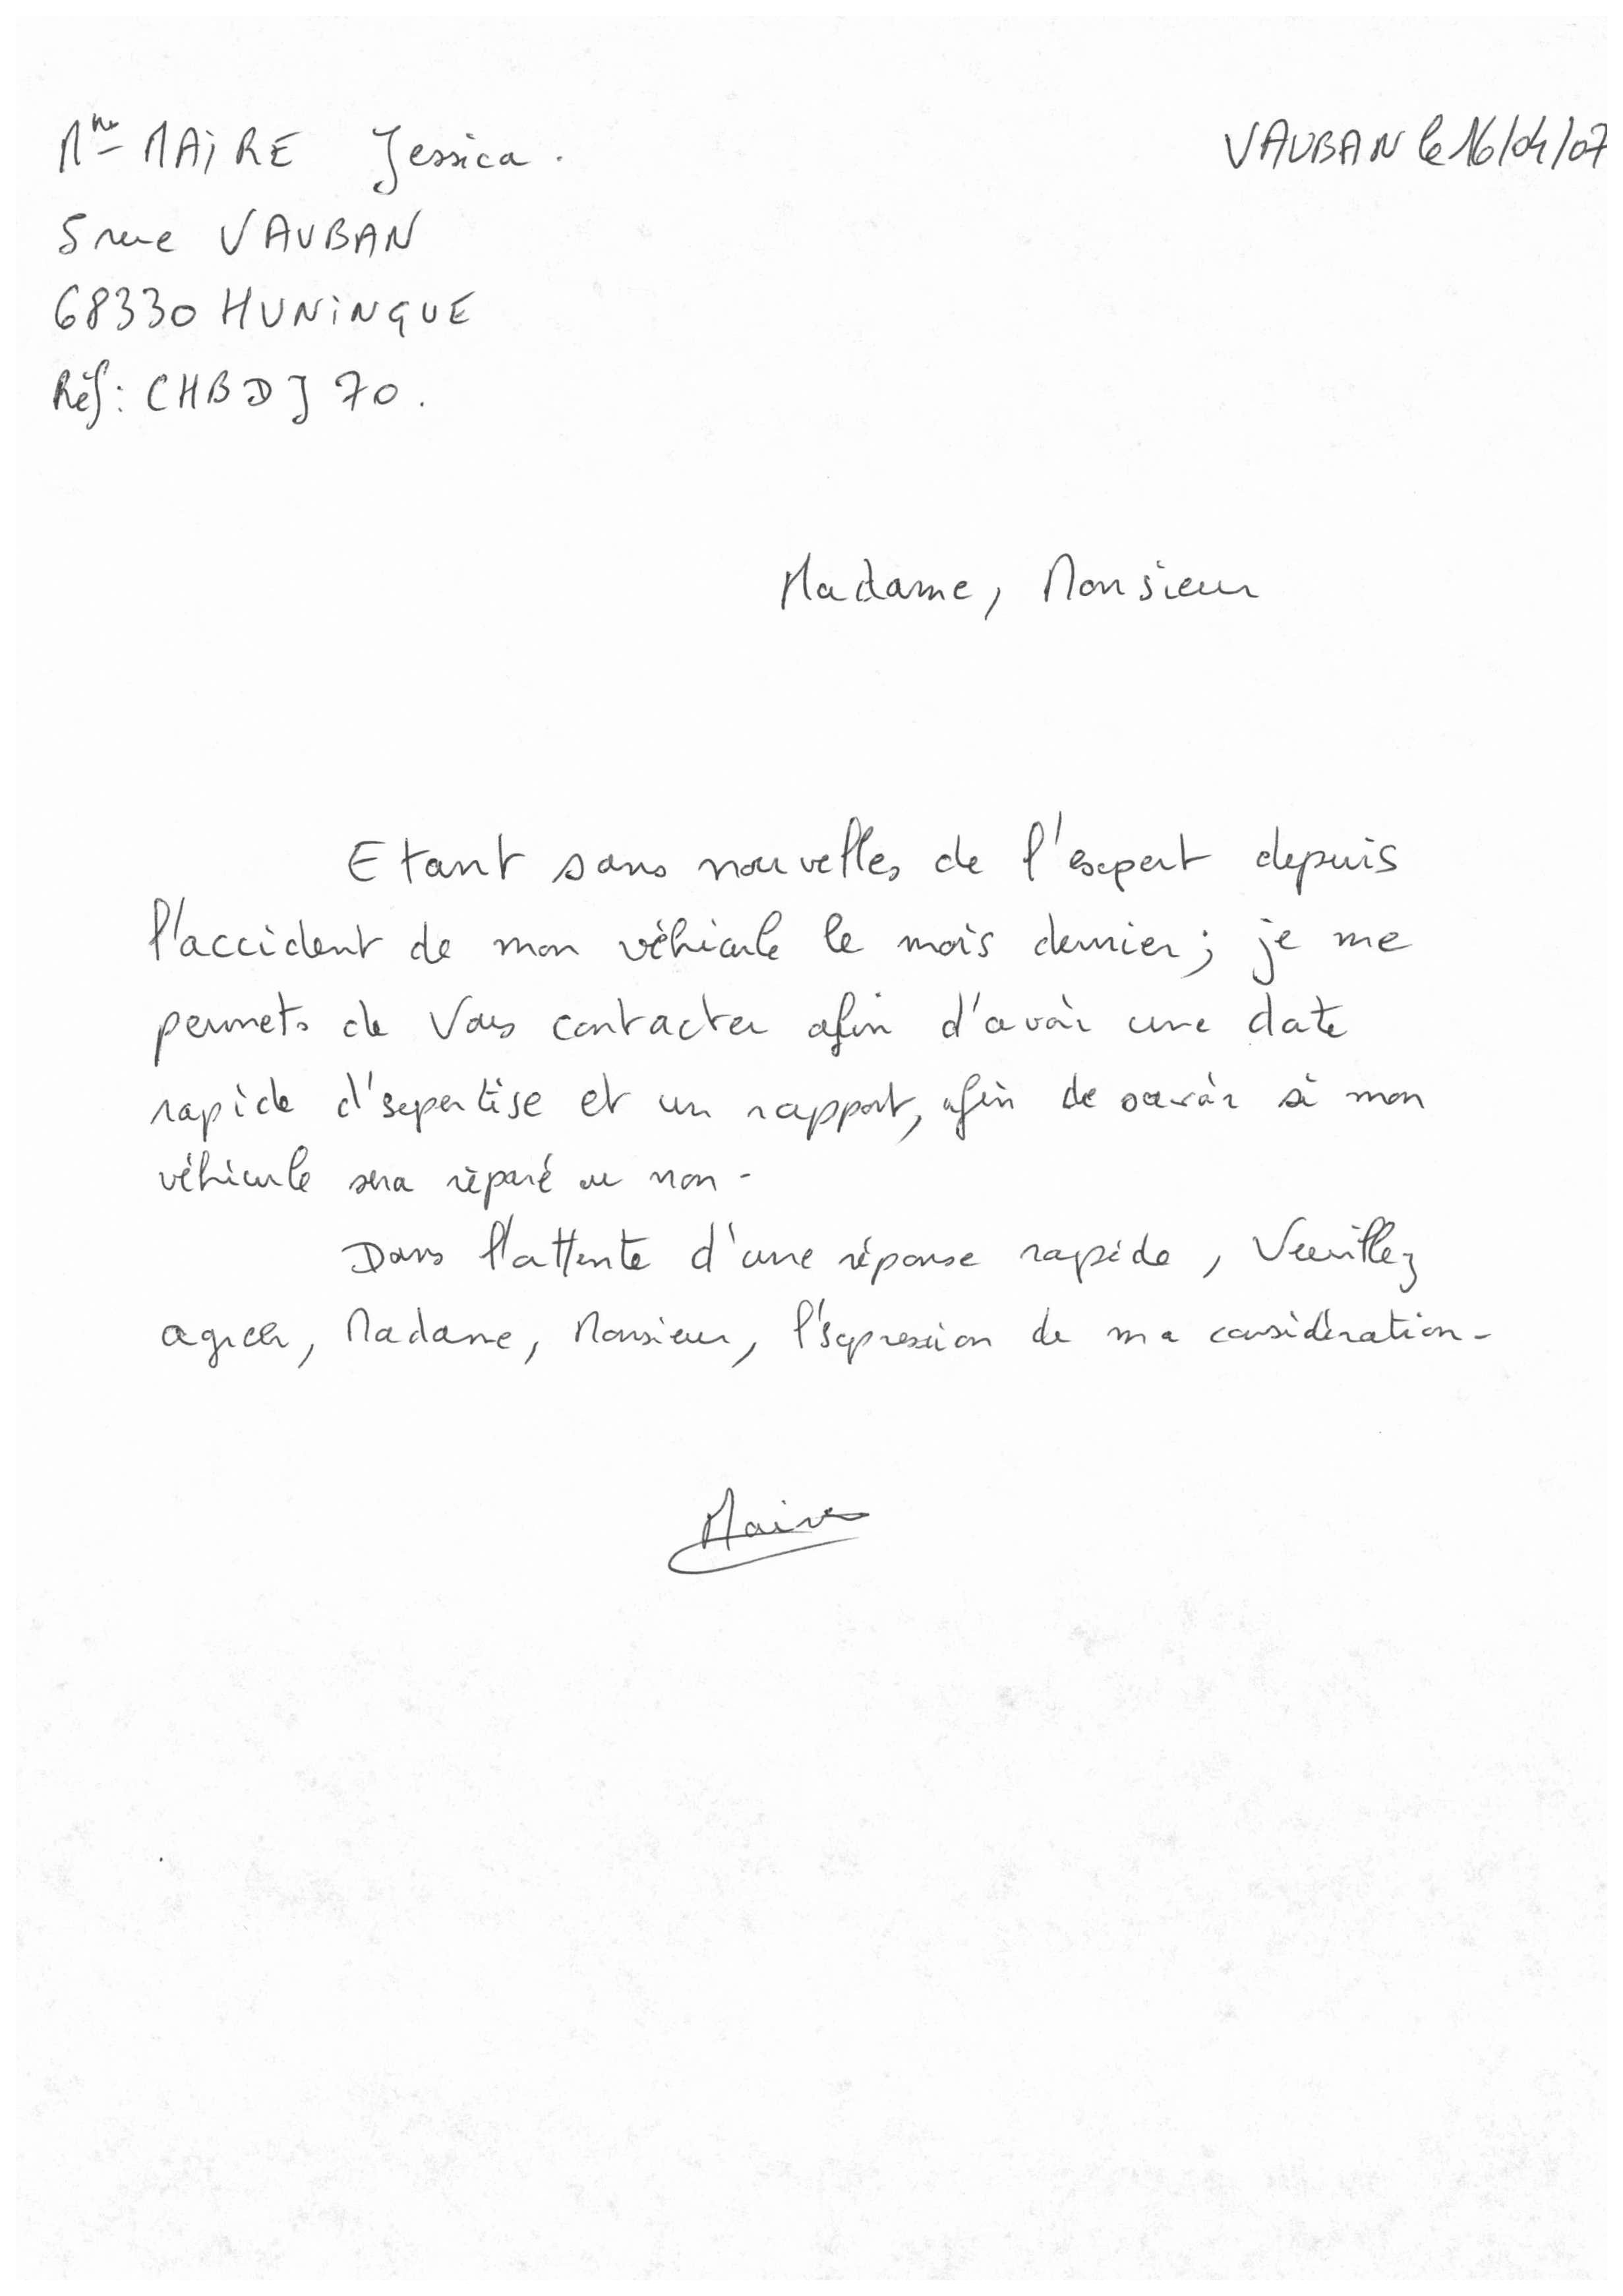 Mme MAIRE Jessica.
VAUBAN le 16/04/07
5 rue VAUBAN
68330 HUNINGUE
Réf: CHBDJ70.
Madame, Monsieur
Etant sans nouvelles de l'expert depuis
l'accident de mon véhicule le mois dernier; je me
permets de Vous contacter afin d'avoir une date
rapide d'expertise et un rapport, afin de savoir si mon
véhicule sera réparé ou non-
Dans l'attente d'une réponse rapide, Veuillez
agréer, Madame, Monsieur, l'expression de ma considération-
Maire